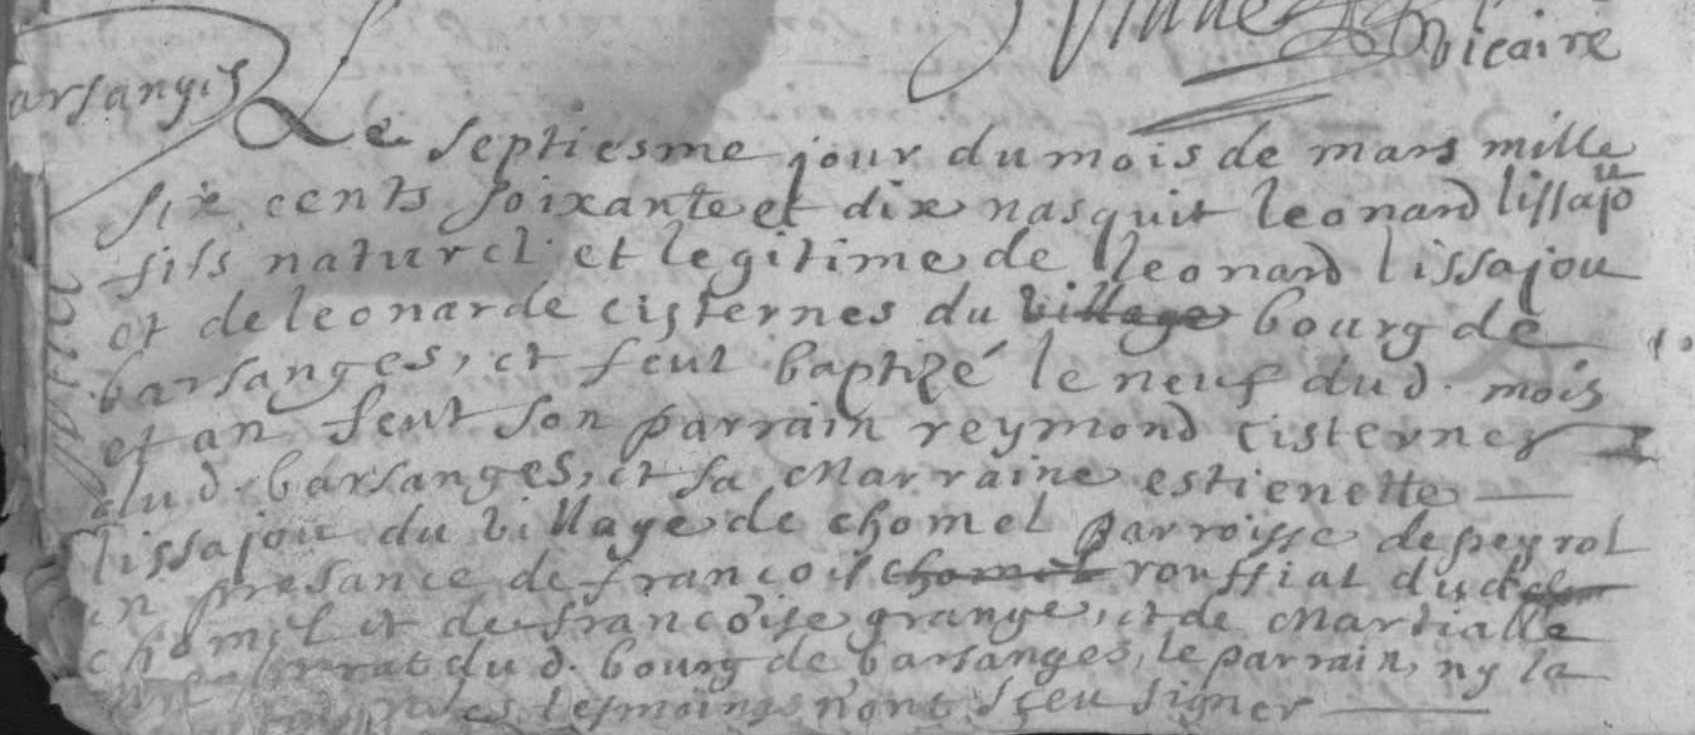 vicaire
arsanges
Le septiesme jour du mois de mars mille
six cents soixante et dix nasquit leonard lissajou
fils naturel et legitime de leonard lissajou
et de leonarde cisternes du village bourg de
barsanges, et feut baptizé le neuf dud. mois
et an feut son parrain reymond cisternes
dud. barsanges, et sa marraine estienette
lissajou du village de chomel parroisse de peyrol
en presance de francois chomel rouffiat dud
chomel et de francoise grange, et de martialle
du d. bourg de barsanges, le parrain, ny la
les tesmoings n'ont sceu signer